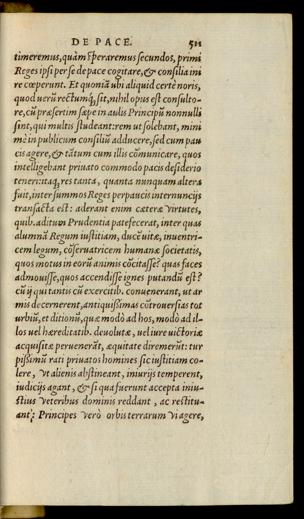 DE PACE. 511
timeremus, quàm speraremus secundos, primi
Reges ipsi per se de pace cogitare, & consilia ini
re cœperunt. Et quoniã ubi aliquid certè noris,
quod verũ rectumq́; sit, nihil opus est consulto-
re, cũ præsertim sæpe in aulis Principũ nonnulli
sint, qui multis studeant: rem ut solebant, mini
mè in publicum consiliũ adducere, sed cum pau
cis agere, & tãtum cum illis cõmunicare, quos
intelligebant priuato commodo pacis desiderio
teneri: itaq; res tanta, quanta nunquam altera
fuit, inter summos Reges perpaucis internuncijs
transacta est: aderant enim cæteræ virtutes,
quib. aditum Prudentia patefecerat, inter quas
alumnã Regum iustitiam, ducẽ uitæ, inuentri-
cem legum, cõseruatricem humanæ societatis,
quos motus in eorũ animis cõcitasse? quas faces
admouisse, quos accendisse ignes putandũ est?
cũ ij qui tantis cũ exercitib. conuenerant, ut ar
mis decernerent, antiquißimas cõtrouersias tot
urbiũ, et ditionũ, quæ modò ad hos, modò ad il-
los uel hæreditatib. deuolutæ, uel iure uictoriæ
acquisitæ peruenerãt, æquitate diremerũt: tur
pißimũ rati priuatos homines sic iustitiam co-
lere, vt alienis abstineant, iniurijs temperent,
iudicijs agant, & si qua fuerunt accepta iniu-
stius veteribus dominis reddant, ac restitu-
ant; Principes verò orbis terrarum vi agere,